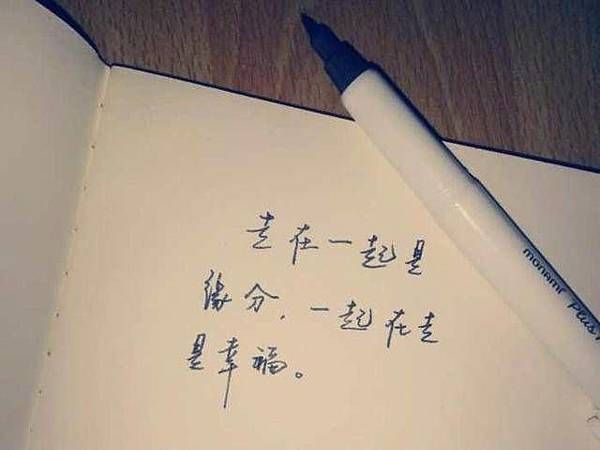 走在一起是
缘分,一起在走
是幸福。
monami Plus